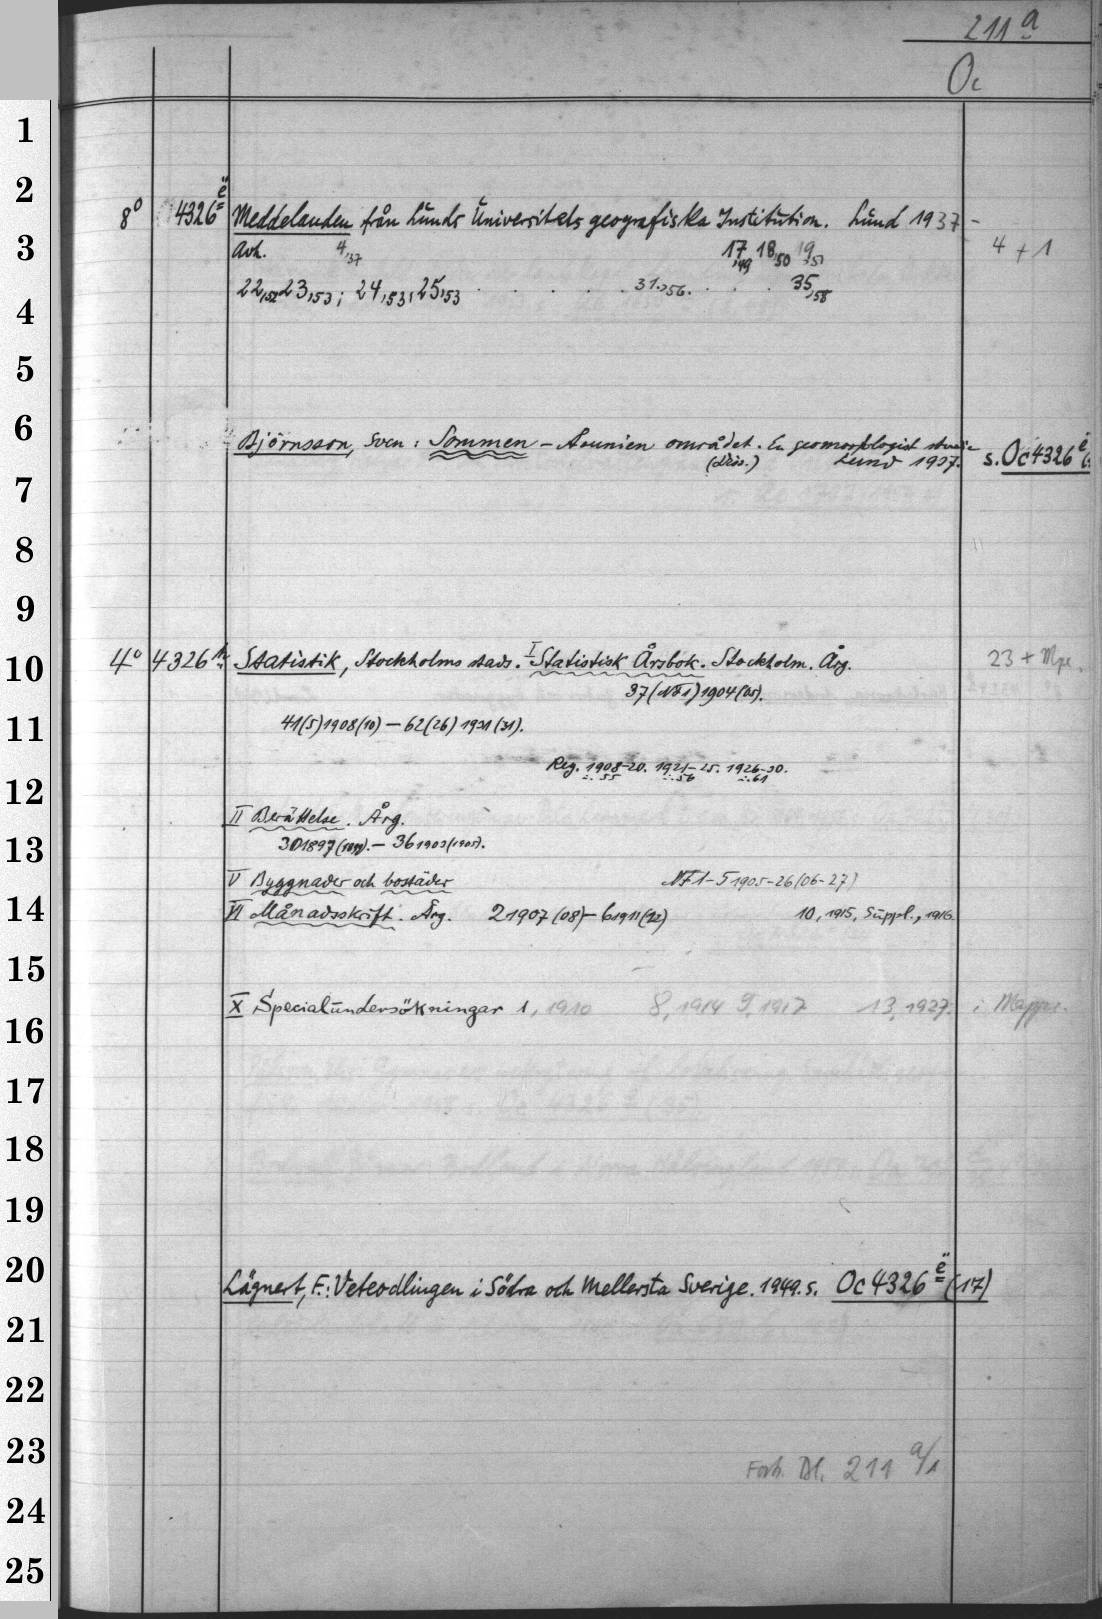 211 a
Oc
8° 4326 ë Meddelanden från Lunds Universitets geografiska Institution. Lund 1937 -
Avh. 4,37 17,49 18,50 19,51 4 + 1
22,52 23,53; 24,53; 25,53 . . . . . 31,56. . . . 35,58
Björnsson, Sven: Sommen - Åsunien området. En geomorfologisk studie
(Diss.) Lund 1937. s. Oc 4326 ë
4° 4326 Statistik, Stockholms stads. I Statistisk Årsbok. Stockholm. Årg. 23 + Mpe.
37 (NF1) 1904 (05).
41(5) 1908(10) - 62(26) 1931(31).
Reg. 1908-20. 1921-25. 1926-30.
i. 55 i. 56 i. 61
II Berättelse. Årg.
30 1897 - 36 1903 (1905).
V Byggnader och bostäder NF 1-5 1905-26 (06-27)
VI Månadsskrift. Årg. 2 1907 (08) - 6 1911 (12) 10, 1915, Suppl., 1916.
X Specialundersökningar 1, 1910 8, 1914 9, 1917 13, 1927. i Mappe.
Lägnert, F.: Veteodlingen i Södra och Mellersta Sverige. 1949. s. Oc 4326 ë (17)
Forts. Bl. 211 a/1
1
2
3
4
5
6
7
8
9
10
11
12
13
14
15
16
17
18
19
20
21
22
23
24
25